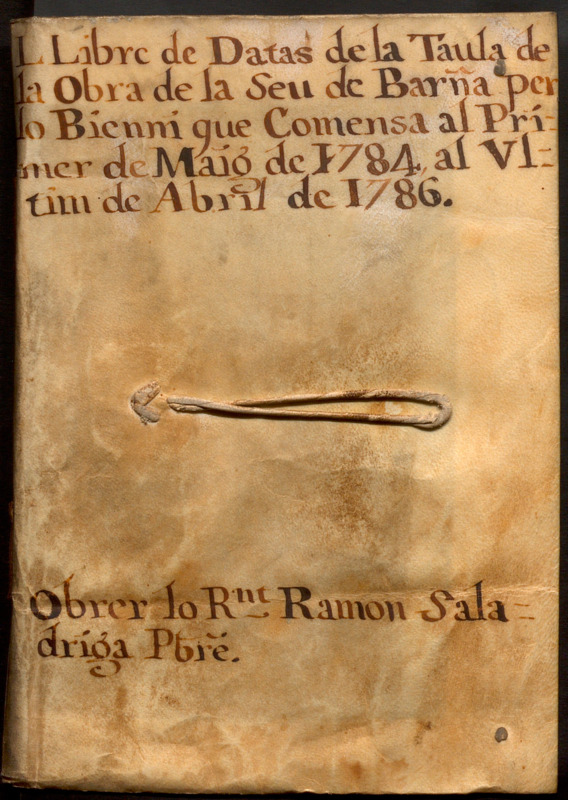 L Libre de Datas de la Taula de
la Obra de la Seu de Barña per
lo Bienni que Comensa al Pri=
mer de Maig de 1784, al Vl=
tim de Abril de 1786.
Obrer lo Rnt Ramon Sala=
driga Pbre.